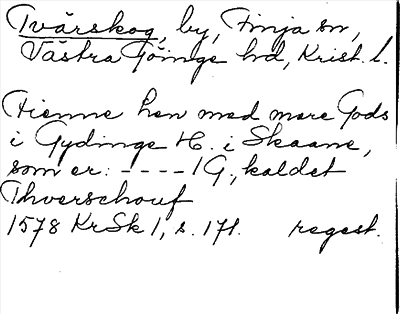 Tvärskog, by, Finja sn,
Västra Göinge hd, Krist. l.
Hienne hen med mere Gods
i Gydinge H. i Skaane,
som er: ---- 1 G., kaldet
Thverschouf
1578 KrSk 1, s. 171. regest.